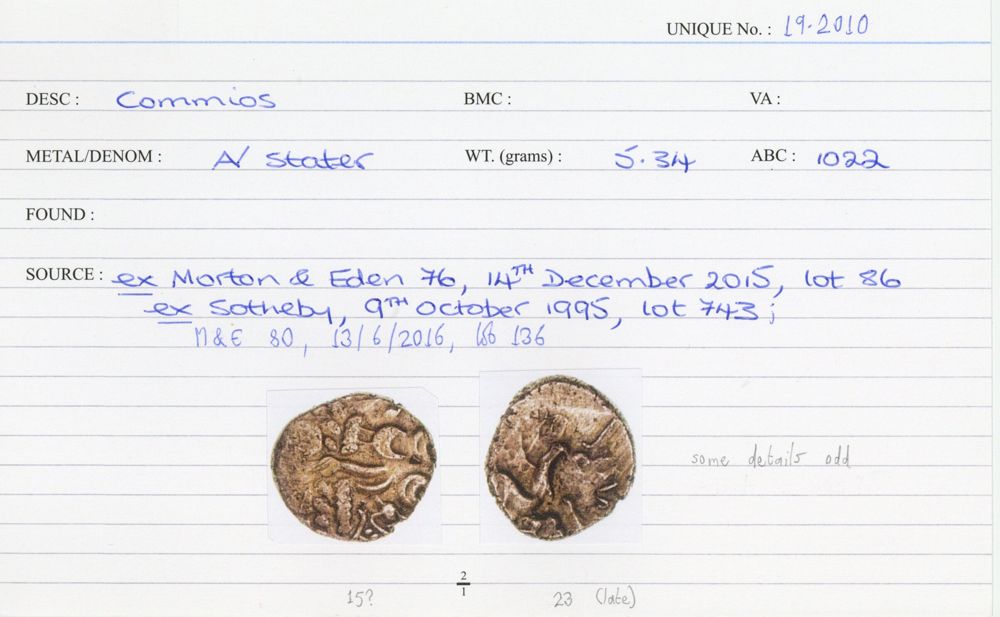 UNIQUE No. : 19.2010
DESC : Commios BMC : VA :
METAL/DENOM : A/ Stater WT. (grams) : 5.34 ABC : 1022
FOUND :
SOURCE : ex Morton & Eden 76, 14TH December 2015, lot 86
ex Sotheby, 9TH October 1995, lot 743;
M&E 80, 13/6/2016, lot 136
some details odd
2/1
15? 23 (late)